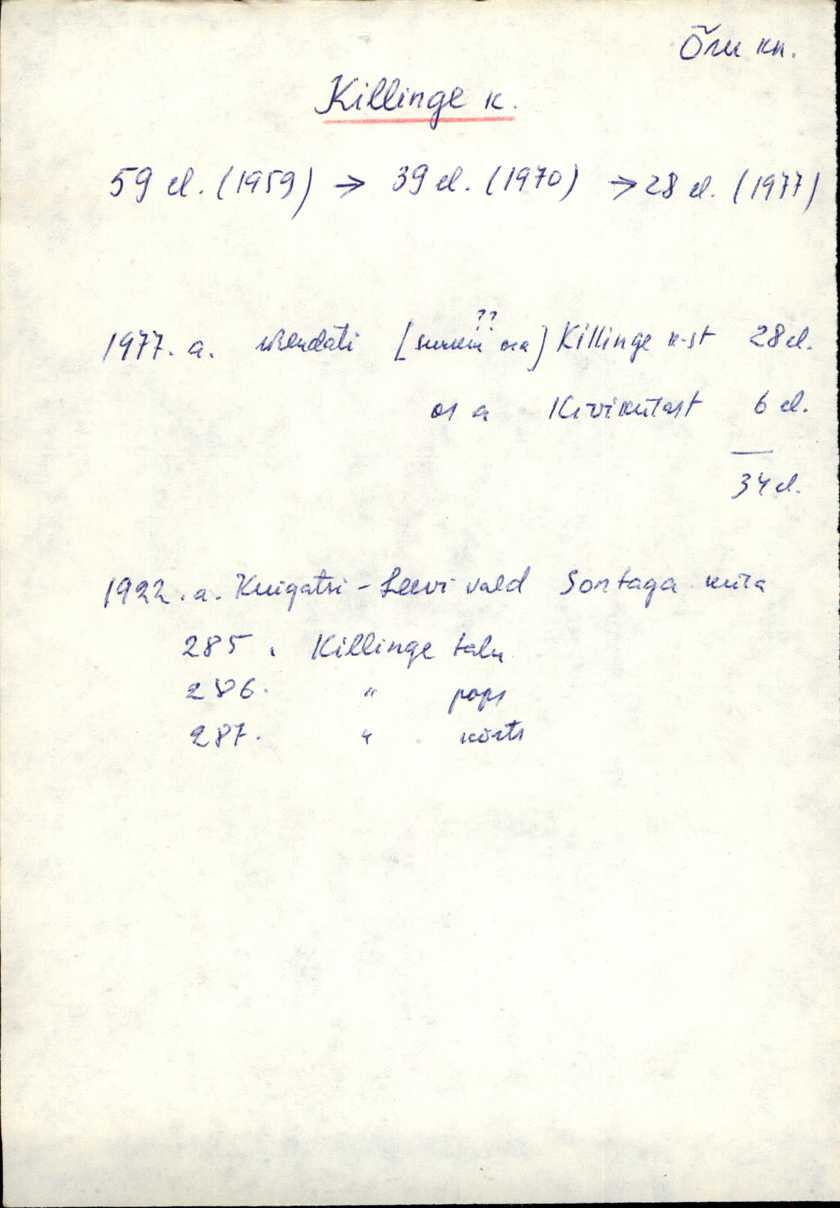 Õru kn.
Killinge k.
59 el. (1959) → 39 el. (1970) → 28 el. (1977)
??
1977. a. ühendati [suurem osa] Killinge k-st 28 el.
osa Kivikütast 6 el.
34 el.
1922. a. Kuigatsi-Leevi vald Sontaga küla
285. Killinge talu
286. " pops
287. " kõrts